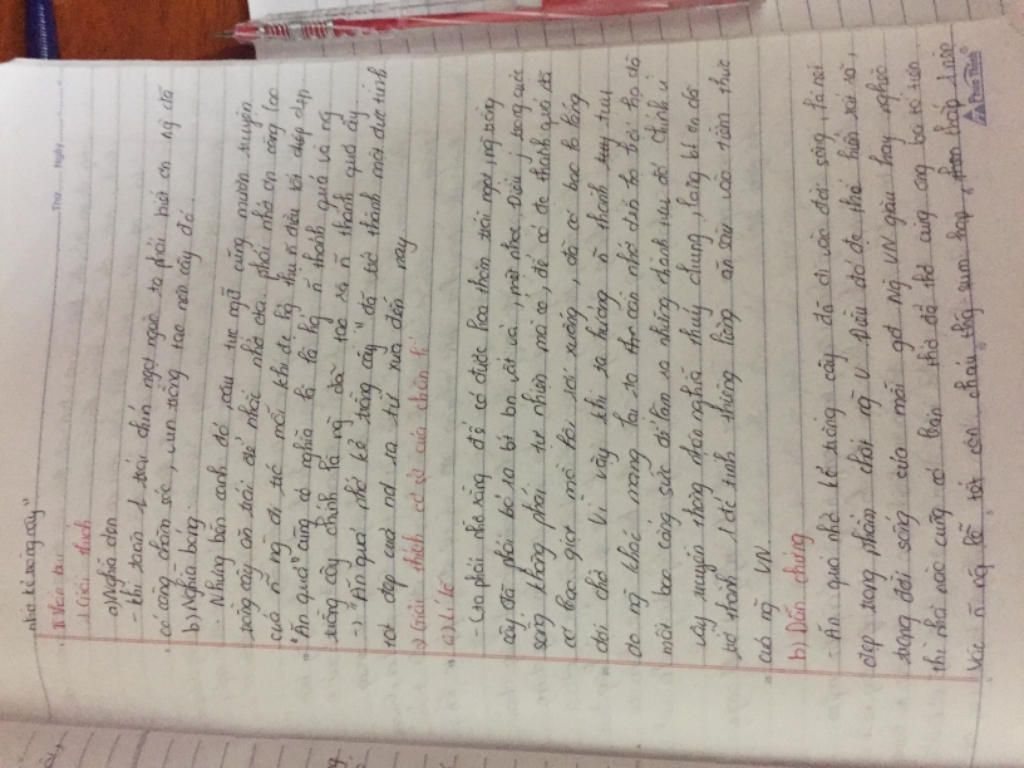 nhớ kẻ trồng cây"
II Thân bài
1. Giải thích
a) Nghĩa đen
- Khi toàn 1 trái chín ngọt ngào ta phải biết ơn ng đã
có công chăm sóc, vun trồng tạo nên cây đó.
b) Nghĩa bóng:
- Nhưng bên cạnh đó, câu tục ngữ cũng muốn khuyên
răng cây ăn trái để nhắc nhở ta phải nhớ ơn công lao
của n ng đi trc mỗi khi đc hg thụ n điều tốt đẹp đẹp.
"Ăn quả" cũng có nghĩa là là hg n thành quả và ng
trồng cây chính là ng đã tạo ra n thành quả ấy
-> "Ăn quả nhớ kẻ trồng cây" đã trở thành một đức tính
tốt đẹp của nd ta từ xưa đến nay
2) Giải thích cơ sở của chân lí
a) Lí lẽ
- Ta phải nhớ rằng để có được hoa thơm trái ngọt, ng trồng
cây đã phải bỏ ra bt bn vất vả, mệt nhọc. Điều trong cuộc
sống không phải tự nhiên mà có, để có đc thành quả đó
có bao giọt mồ hôi rơi xuống, đã có bao k lắng
đợi chờ. Vì vậy khi ta hưởng n thành tựu
do ng khác mang lại ta cần nhớ đến họ bởi họ đã
mất bao công sức để làm ra những thành tựu đó. Chính vì
vậy truyền thống nhân nghĩa thủy chung, lòng bt ơn đã
trở thành 1 đc tính thiêng liêng ăn sâu vào tiềm thức
của ng VN
b) Dẫn chứng
- Ăn quả nhớ kẻ trồng cây đã đi vào đời sống, là nét
đẹp trong phẩm chất ng V. Điều đó đc thể hiện rất rõ,
trong đời sống của mỗi gđ. Ng VN giàu hay nghèo
thì nhà nào cũng có bàn thờ để thờ cúng ông bà tổ tiên.
Vào n ng lễ tết con cháu thg sum họp, thắp nén